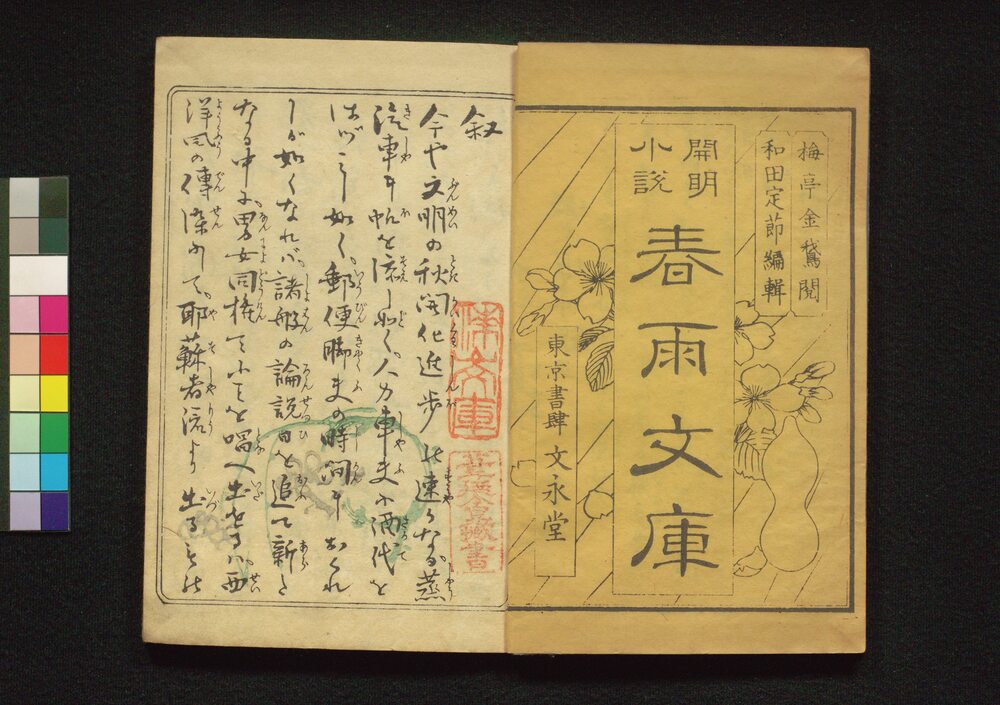 梅亭金鵞閲
和田定節編輯
開明
小説
春雨文庫
東京書肆 文永堂
叙
今や文明の秋開化進歩の速かなる蒸
汽車に帆を添しが如く人力車夫に酒代を
はづみし如く郵便脚夫の時間におくれ
しが如くなれバ諸般の論説日を追て新と
なる中に男女同権てふことを唱へ出せるハ西
洋風の傳染にて耶蘇者流より出ることの